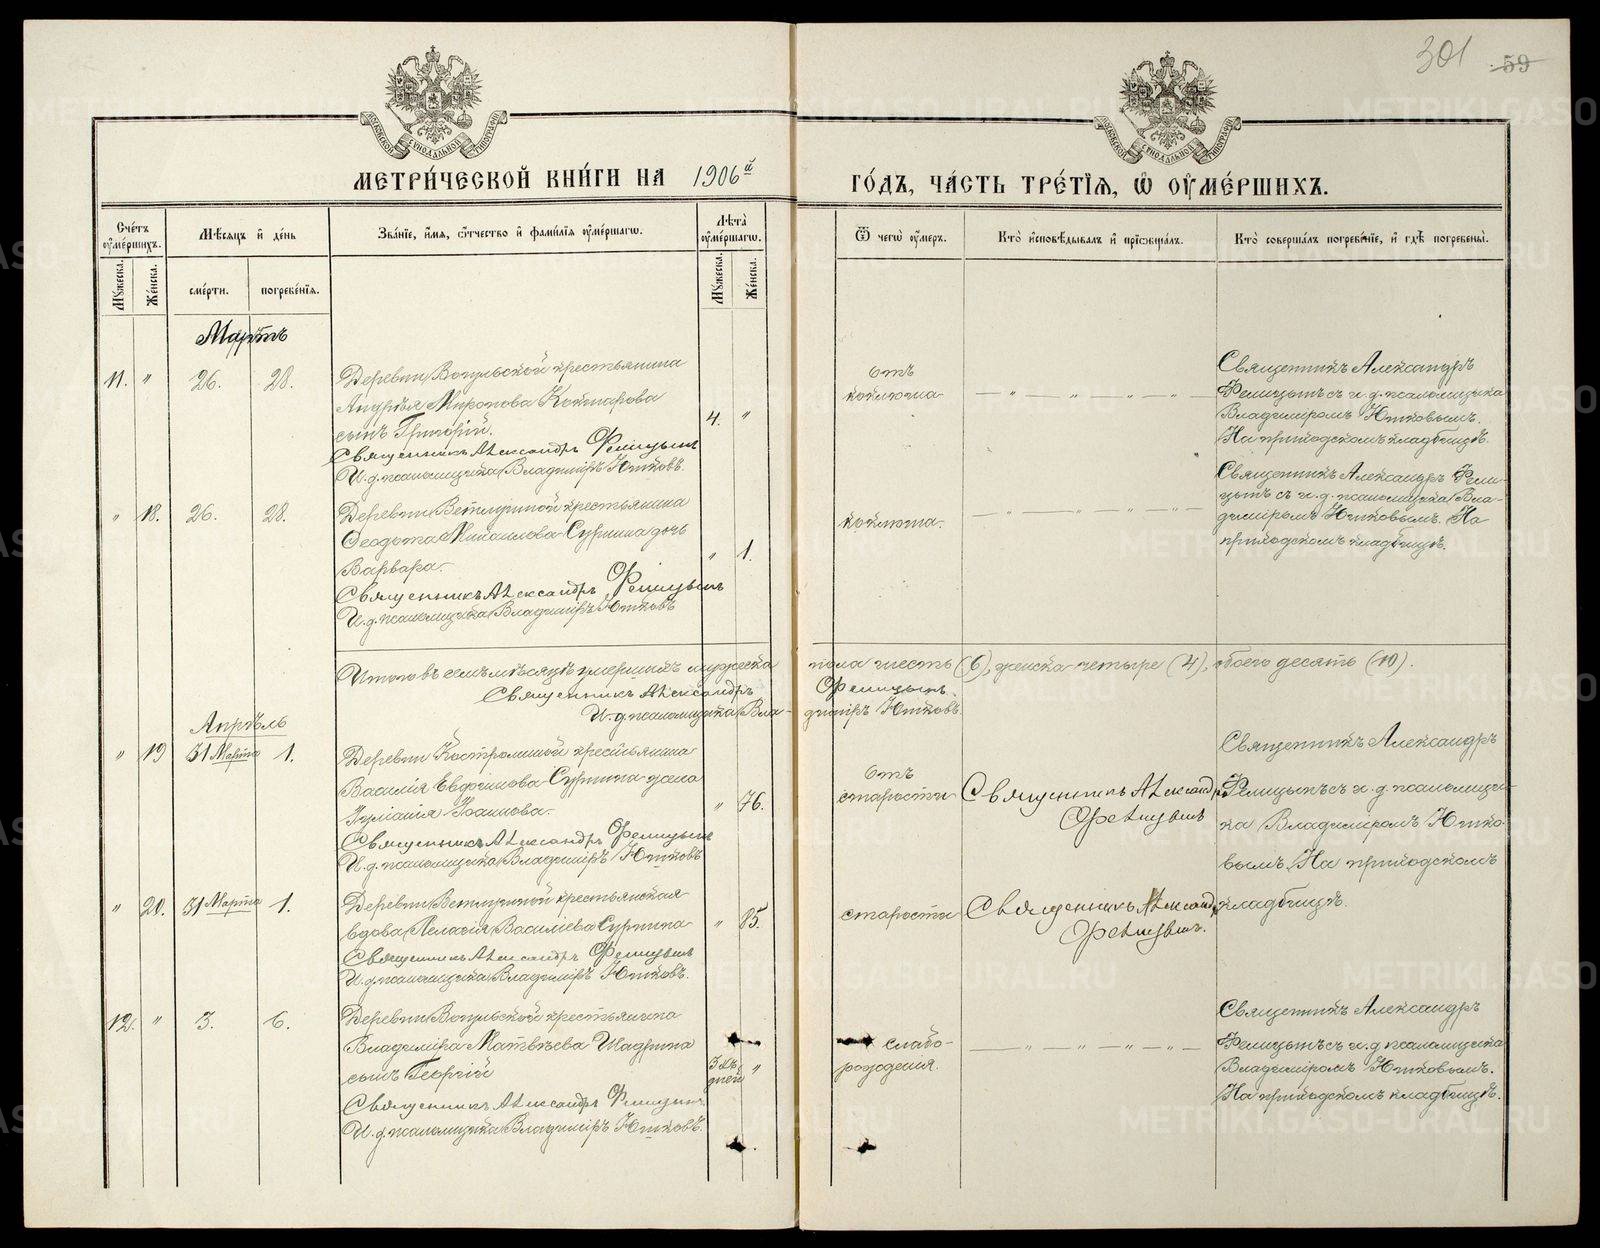 301 59
МЕТРИ́ЧЕСКОЙ КНИ́ГИ НА 1906й ГО́ДЪ, ЧА́СТЬ ТРЕ́ТІѦ, Ѡ ОУ҆МЕ́РШИХЪ.
Сче́тъ оу҆ме́ршихъ.
Мѣ́сѧцъ и҆ де́нь
Зва́нїе, и҆́мѧ, ѻ҆́тчество и҆ фами́лїѧ оу҆ме́ршагѡ.
Лѣ́та оу҆ме́ршагѡ.
Ѿ чегѡ̀ оу҆́меръ.
Кто̀ и҆сповѣ́дывалъ и҆ прїѡбща́лъ.
Кто̀ соверша́лъ погребе́нїе, и҆ гдѣ̀ погребены̀.
Мꙋ́жеска.
Же́нска.
сме́рти.
погребе́нїѧ.
Мꙋ́жеска.
Же́нска.
Мартъ
11. " 26. 28.
Деревни Вогульской крестьянина
Андрея Миронова Комарова
сынъ Григорій.
Священникъ Александръ Фелицынъ
И.д. псаломщика Владиміръ Ютковъ.
4. "
отъ
коклюша
— " — " — " — " —
Священникъ Александръ
Фелицынъ съ и.д. псаломщика
Владиміромъ Ютковымъ.
На приходскомъ кладбищѣ.
" 18. 26. 28.
Деревни Ветлугиной крестьянина
Ѳеодота Михаилова Сургина дочь
Варвара.
Священникъ Александръ Фелицынъ
И.д. псаломщика Владиміръ Ютковъ
" 1.
коклюша.
— " — " — " — " —
Священникъ Александръ Фели-
цынъ съ и.д. псаломщика Вла-
диміромъ Ютковымъ. На
приходскомъ кладбищѣ.
Итого въ семъ мѣсяцѣ умершихъ мужеска пола шесть (6), женска четыре (4), обоего десять (10).
Священникъ Александръ Фелицынъ.
И.д. псаломщика Вла-диміръ Ютковъ.
Апрѣль
" 19 31 Марта 1.
Деревни Костроминой крестьянина
Василія Евфимова Сургина жена
Іуліанія Іоаннова.
Священникъ Александръ Фелицынъ
И.д. псаломщика Владиміръ Ютковъ
" 76.
отъ
старости
Священникъ Александръ
Фелицынъ
Священникъ Александръ
Фелицынъ съ и.д. псаломщи-
ка Владиміромъ Ютко-
вымъ. На приходскомъ
кладбищѣ.
" 20. 31 Марта 1.
Деревни Ветлугиной крестьянская
вдова Пелагія Василіева Сургина
Священникъ Александръ Фелицынъ
И.д. псаломщика Владиміръ Ютковъ.
" 85.
старости
Священникъ Александръ
Фелицынъ.
12. " 3. 6.
Деревни Вогульской крестьянина
Владиміра Матвѣева Шадрина
сынъ Георгій
Священникъ Александръ Фелицынъ
И.д. псаломщика Владиміръ Ютковъ.
дней "
слабо-
рожденія.
— " — " — " — " —
Священникъ Александръ
Фелицынъ съ и.д. псаломщика
Владиміромъ Ютковымъ.
На приходскомъ кладбищѣ.
METRIKI.GASO-URAL.RU